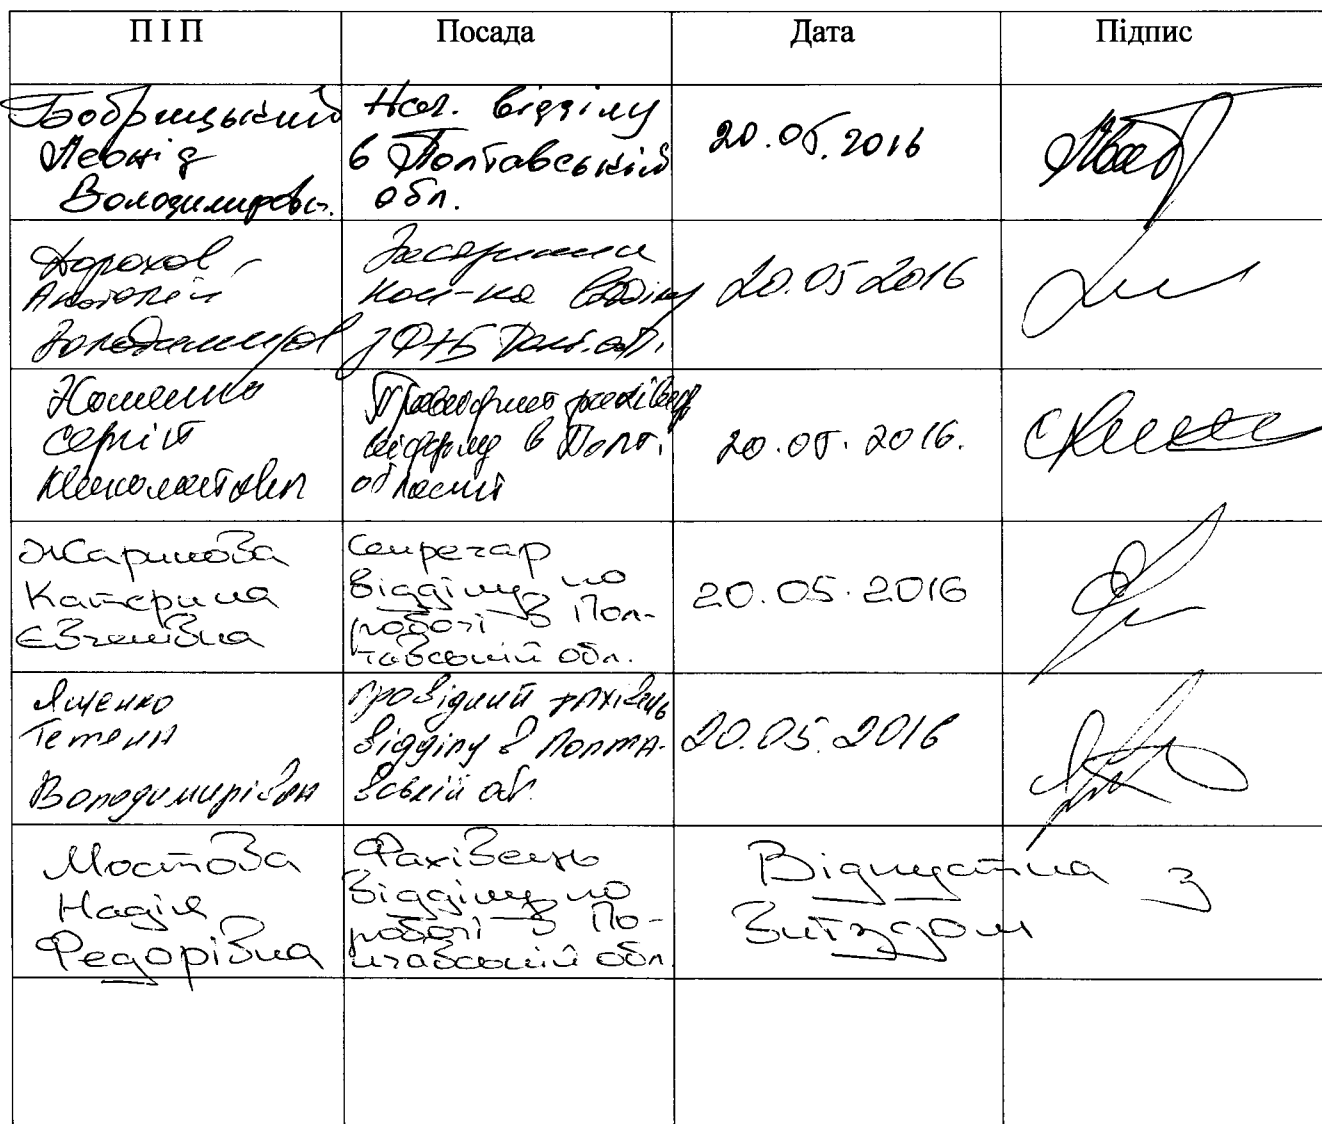 ПІП Посада Дата Підпис
Бобрицький
Леонід
Володимирови.
Нач. відділу
в Полтавській
обл.
20.05.2016
Дорохов
Анатолій
Володимиров
Заступник
нач-ка відділу
20.05 2016
Хоменко
Сергій
Миколайович
Провідний фахівець
відділу в Полт.
області
20.05.2016.
Жаринова
Катерина
Євгенівна
Секретар
відділу по
роботі в Пол-
тавській обл.
20.05.2016
Ященко
Тетяна
Володимирівна
провідний фахівець
відділу в Полта-
вській обл.
20.05.2016
Мостова
Надія
Федорівна
Фахівець
відділу по
роботі в По-
лтавській обл.
Відпустка з
виїздом